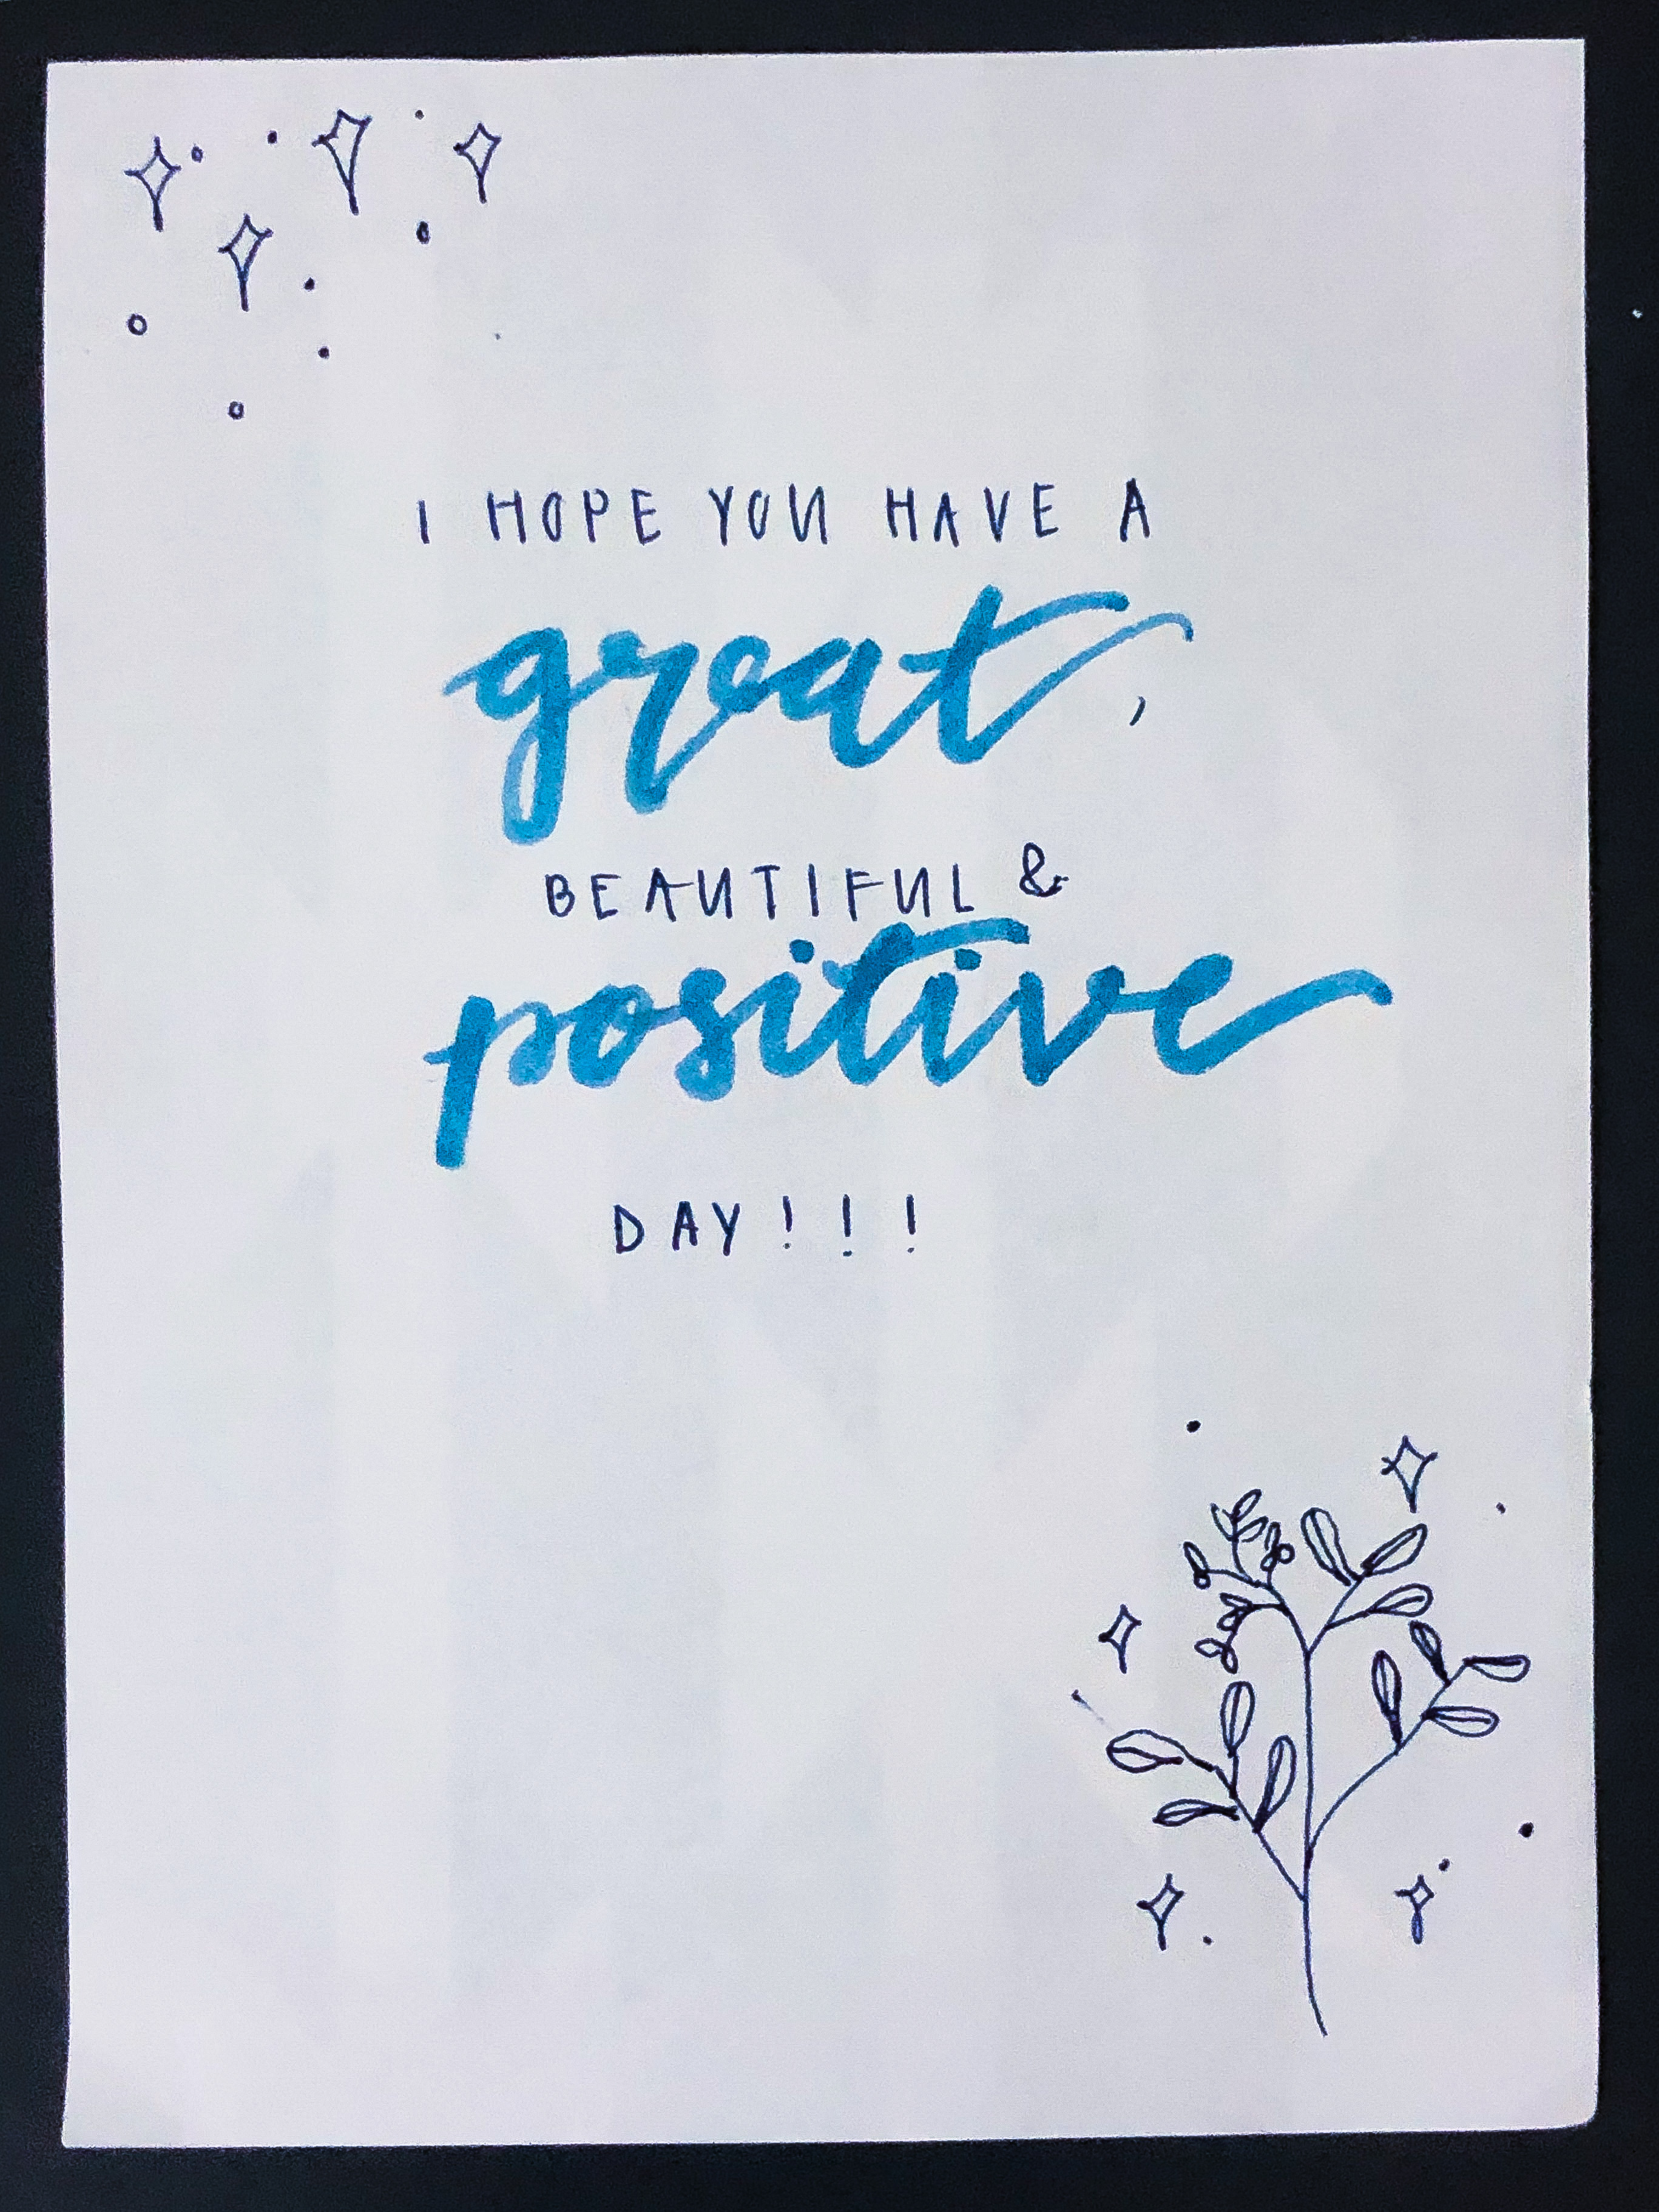 I HOPE YOU HAVE A
great,
BEAUTIFUL &
positive
DAY!!!